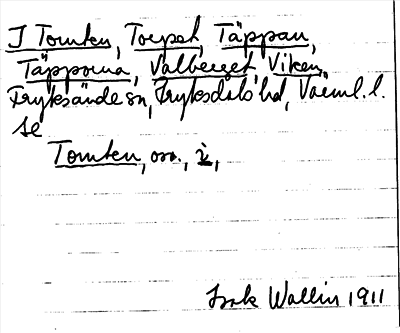 I Tomten, Torpet, Täppan,
Täpporna, Valberget Viken,
Fryksände sn, Fryksdals hd, Värml. l.
se
Tomten, om., i,
Isak Wallin 1911